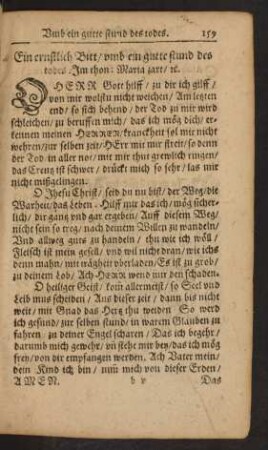 Vmb ein gutte stund des todes. 159
Ein ernstlich Bitt / vmb ein gutte stund des
todes / Im thon: Maria zart / ıc.
O HERR Gott hilff / zu dir ich gilff /
von mir wolstu nicht weichen / Am letzten
end / so sich behend / der Tod zu mir wird
schleichen / zu beruffen mich / das ich mög dich / er-
kennen meinen HERREN / kranckheit sol mir nicht
wehren / zur selben zeit / HErr mit mir streit / so denn
der Tod in aller not / mit mir thut grewlich ringen /
das Creutz ist schwer / drückt mich so sehr / las mir
nicht mißgelingen.
O Jhesu Christ / seid du nu bist / der Weg / die
Warheit / das Leben. Hilff mir das ich / mög sicher-
lich / dir gantz vnd gar ergeben / Auff diesem Weg /
nicht sein so treg / nach deinem Willen zu wandeln /
Vnd allweg guts zu handeln / thu wie ich wöll /
Fleisch ist mein gesell / vnd wil nicht dran / wie ichs
denn mahn / mir trägheit vorladen / Es ist zu grob /
zu deinem lob / Ach HERR wend mir den schaden.
O heiliger Geist / kom allermeist / so Seel vnd
Leib mus scheiden / Aus dieser zeit / dann bis nicht
weit / mit Gnad das Hertz thu weyden So werd
ich gesund / zur selben stund / in warem Glauben zu
fahren / zu deiner Engel scharen / Das ich begehr /
darumb mich gewehr / vñ stehe mir bey / das ich mög
frey / von dir empfangen werden. Ach Vater mein /
dein Kind ich bin / nim̃ mich von dieser Erden /
AMEN. v v Das